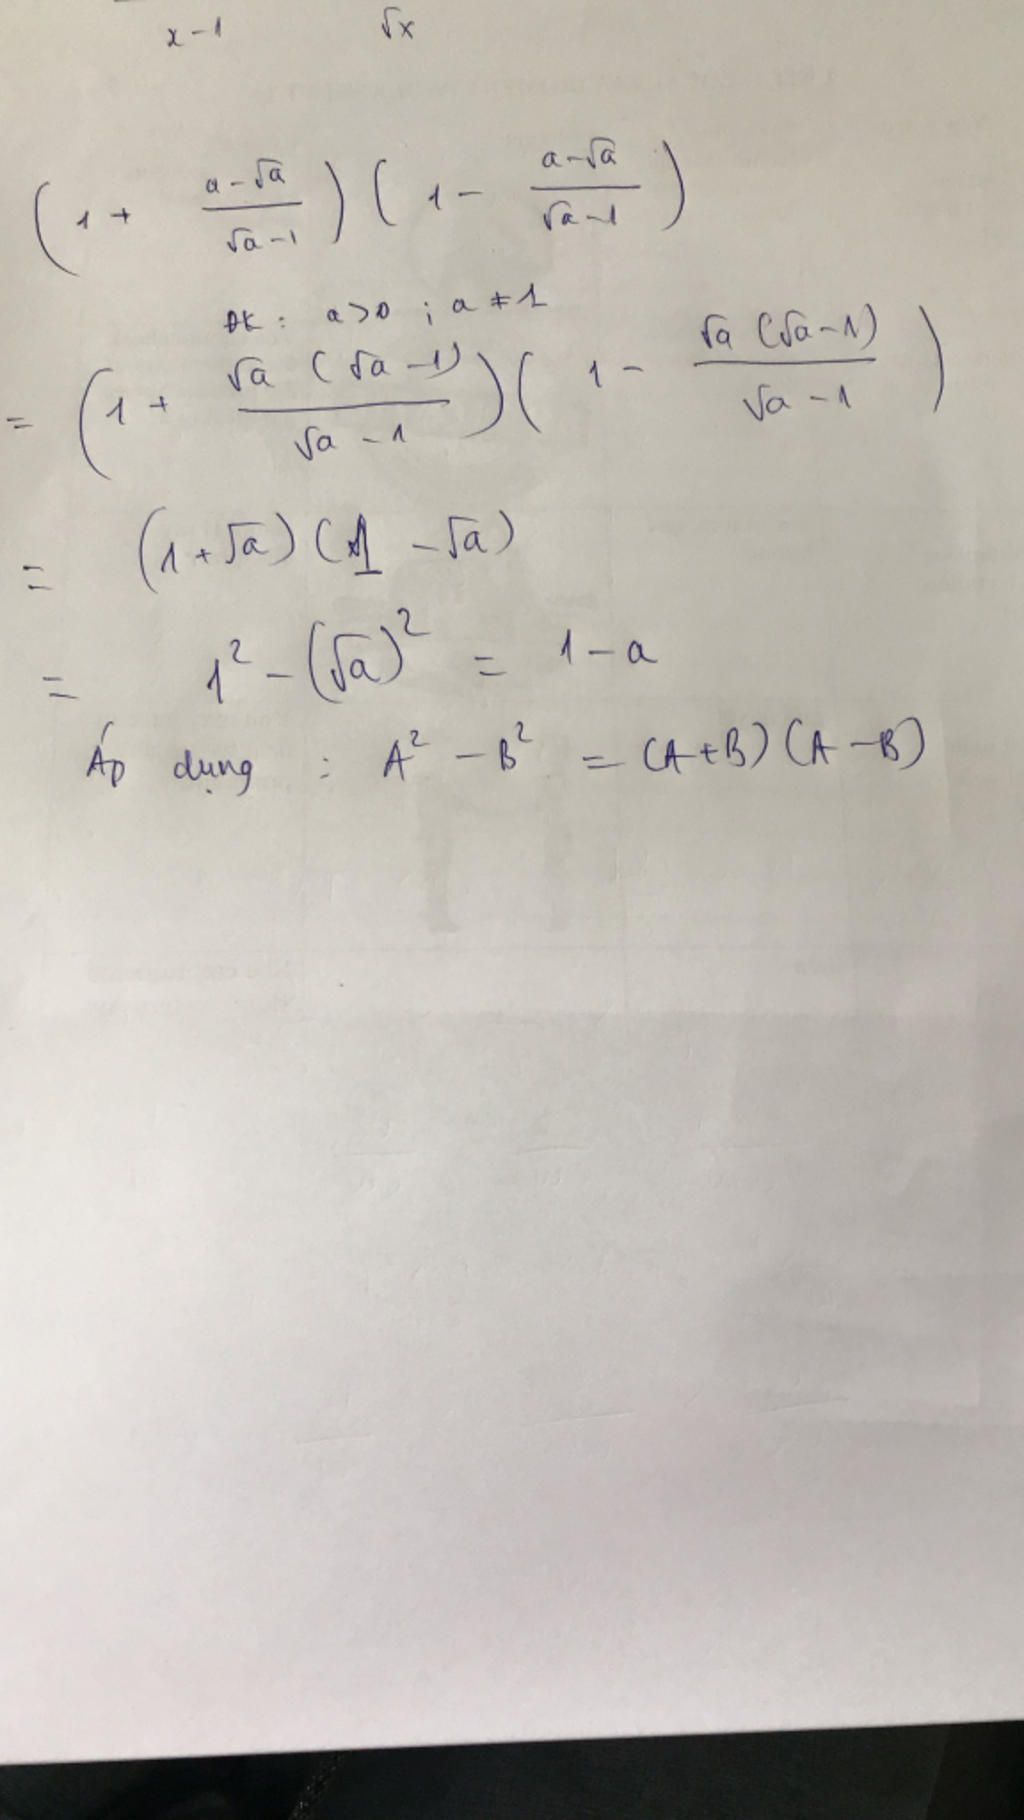 x-1 √x
(1 + (a-√a)/(√a-1)) (1 - (a-√a)/(√a-1))
ĐK: a>0 ; a ≠ 1
= (1 + √a (√a-1)/(√a-1)) (1 - √a (√a-1)/(√a-1))
= (1+√a) (1 -√a)
= 1² - (√a)² = 1-a
Áp dụng : A² - B² = (A+B) (A-B)